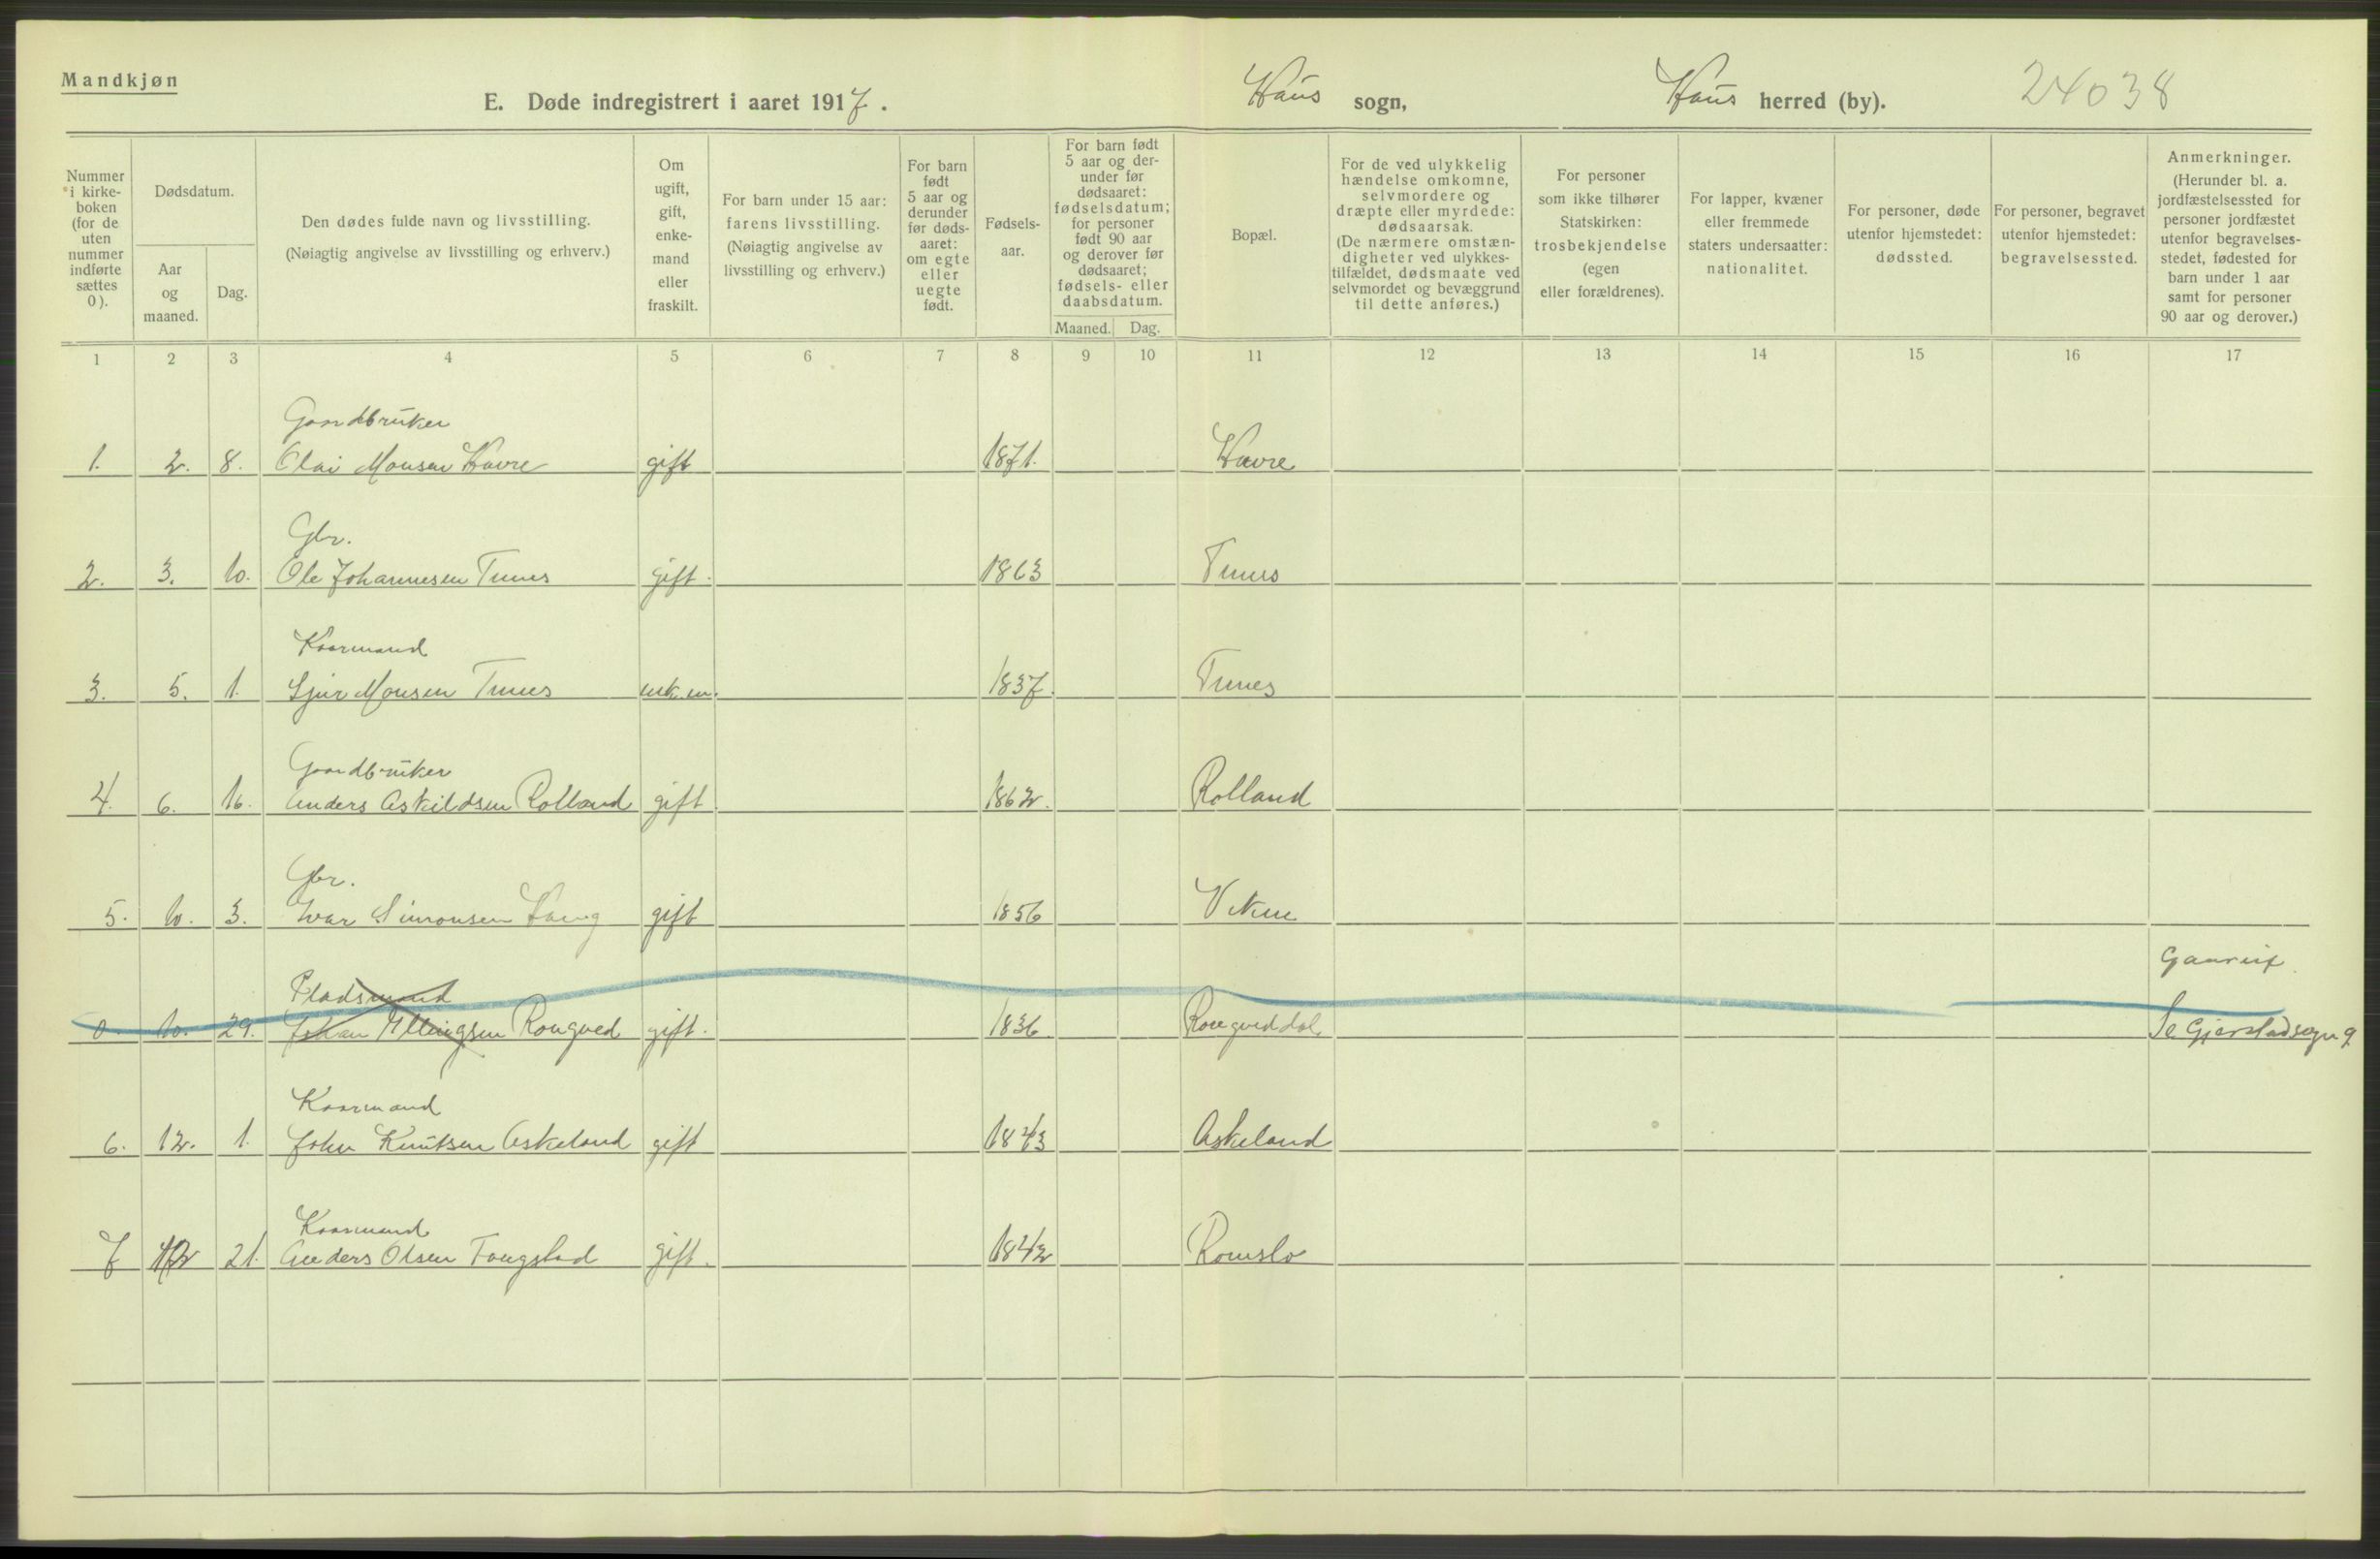 Mandkjøn
E. Døde indregistrert i aaret 1917.
Haus sogn,
Haus herred (by).
24038
Nummer i kirke-boken (for de uten nummer indførte sættes 0).
Dødsdatum.
Aar og maaned.
Dag.
Den dødes fulde navn og livsstilling.
(Nøiagtig angivelse av livsstilling og erhverv.)
Om ugift, gift, enke-mand eller fraskilt.
For barn under 15 aar: farens livsstilling.
(Nøiagtig angivelse av livsstilling og erhverv.)
For barn født 5 aar og derunder før døds-aaret: om egte eller uegte født.
Fødsels-aar.
For barn født 5 aar og der-under før dødsaaret: fødselsdatum; for personer født 90 aar og derover før dødsaaret; fødsels- eller daabsdatum.
Maaned.
Dag.
Bopæl.
For de ved ulykkelig hændelse omkomne, selvmordere og dræpte eller myrdede: dødsaarsak.
(De nærmere omstæn-digheter ved ulykkes-tilfældet, dødsmaate ved selvmordet og bevæggrund til dette anføres.)
For personer som ikke tilhører Statskirken: trosbekjendelse (egen eller forældrenes).
For lapper, kvæner eller fremmede staters undersaatter: nationalitet.
For personer, døde utenfor hjemstedet: dødssted.
For personer, begravet utenfor hjemstedet: begravelsessted.
Anmerkninger.
(Herunder bl. a. jordfæstelsessted for personer jordfæstet utenfor begravelses-stedet, fødested for barn under 1 aar samt for personer 90 aar og derover.)
1 2 3 4 5 6 7 8 9 10 11 12 13 14 15 16 17
Gaardbruker
1. 2. 8. Olai Monsen Havre gift 1871. Havre
Gbr.
2. 3. 10. Ole Johannesen Tunes gift. 1863 Tunes
Kaarmand
3. 5. 1. Sjur Monsen Tunes enkem. 1837. Tunes
Gaardbruker
4. 6. 16. Anders Askildsen Rolland gift 1862. Rolland
Gbr.
5. 10. 3. Ivar Simonsen gift 1856 Viken
Pladsmand
0. 10. 29. Johan Ellingsen Rongved gift. 1836. Rongveddal
Se Gjerstadsogn 9
Kaarmand
6. 12. 1. John Knutsen Askeland gift 1843 Askeland
Kaarmand
7 12 21. Anders Olsen Tangstad gift. 1842 Romslo